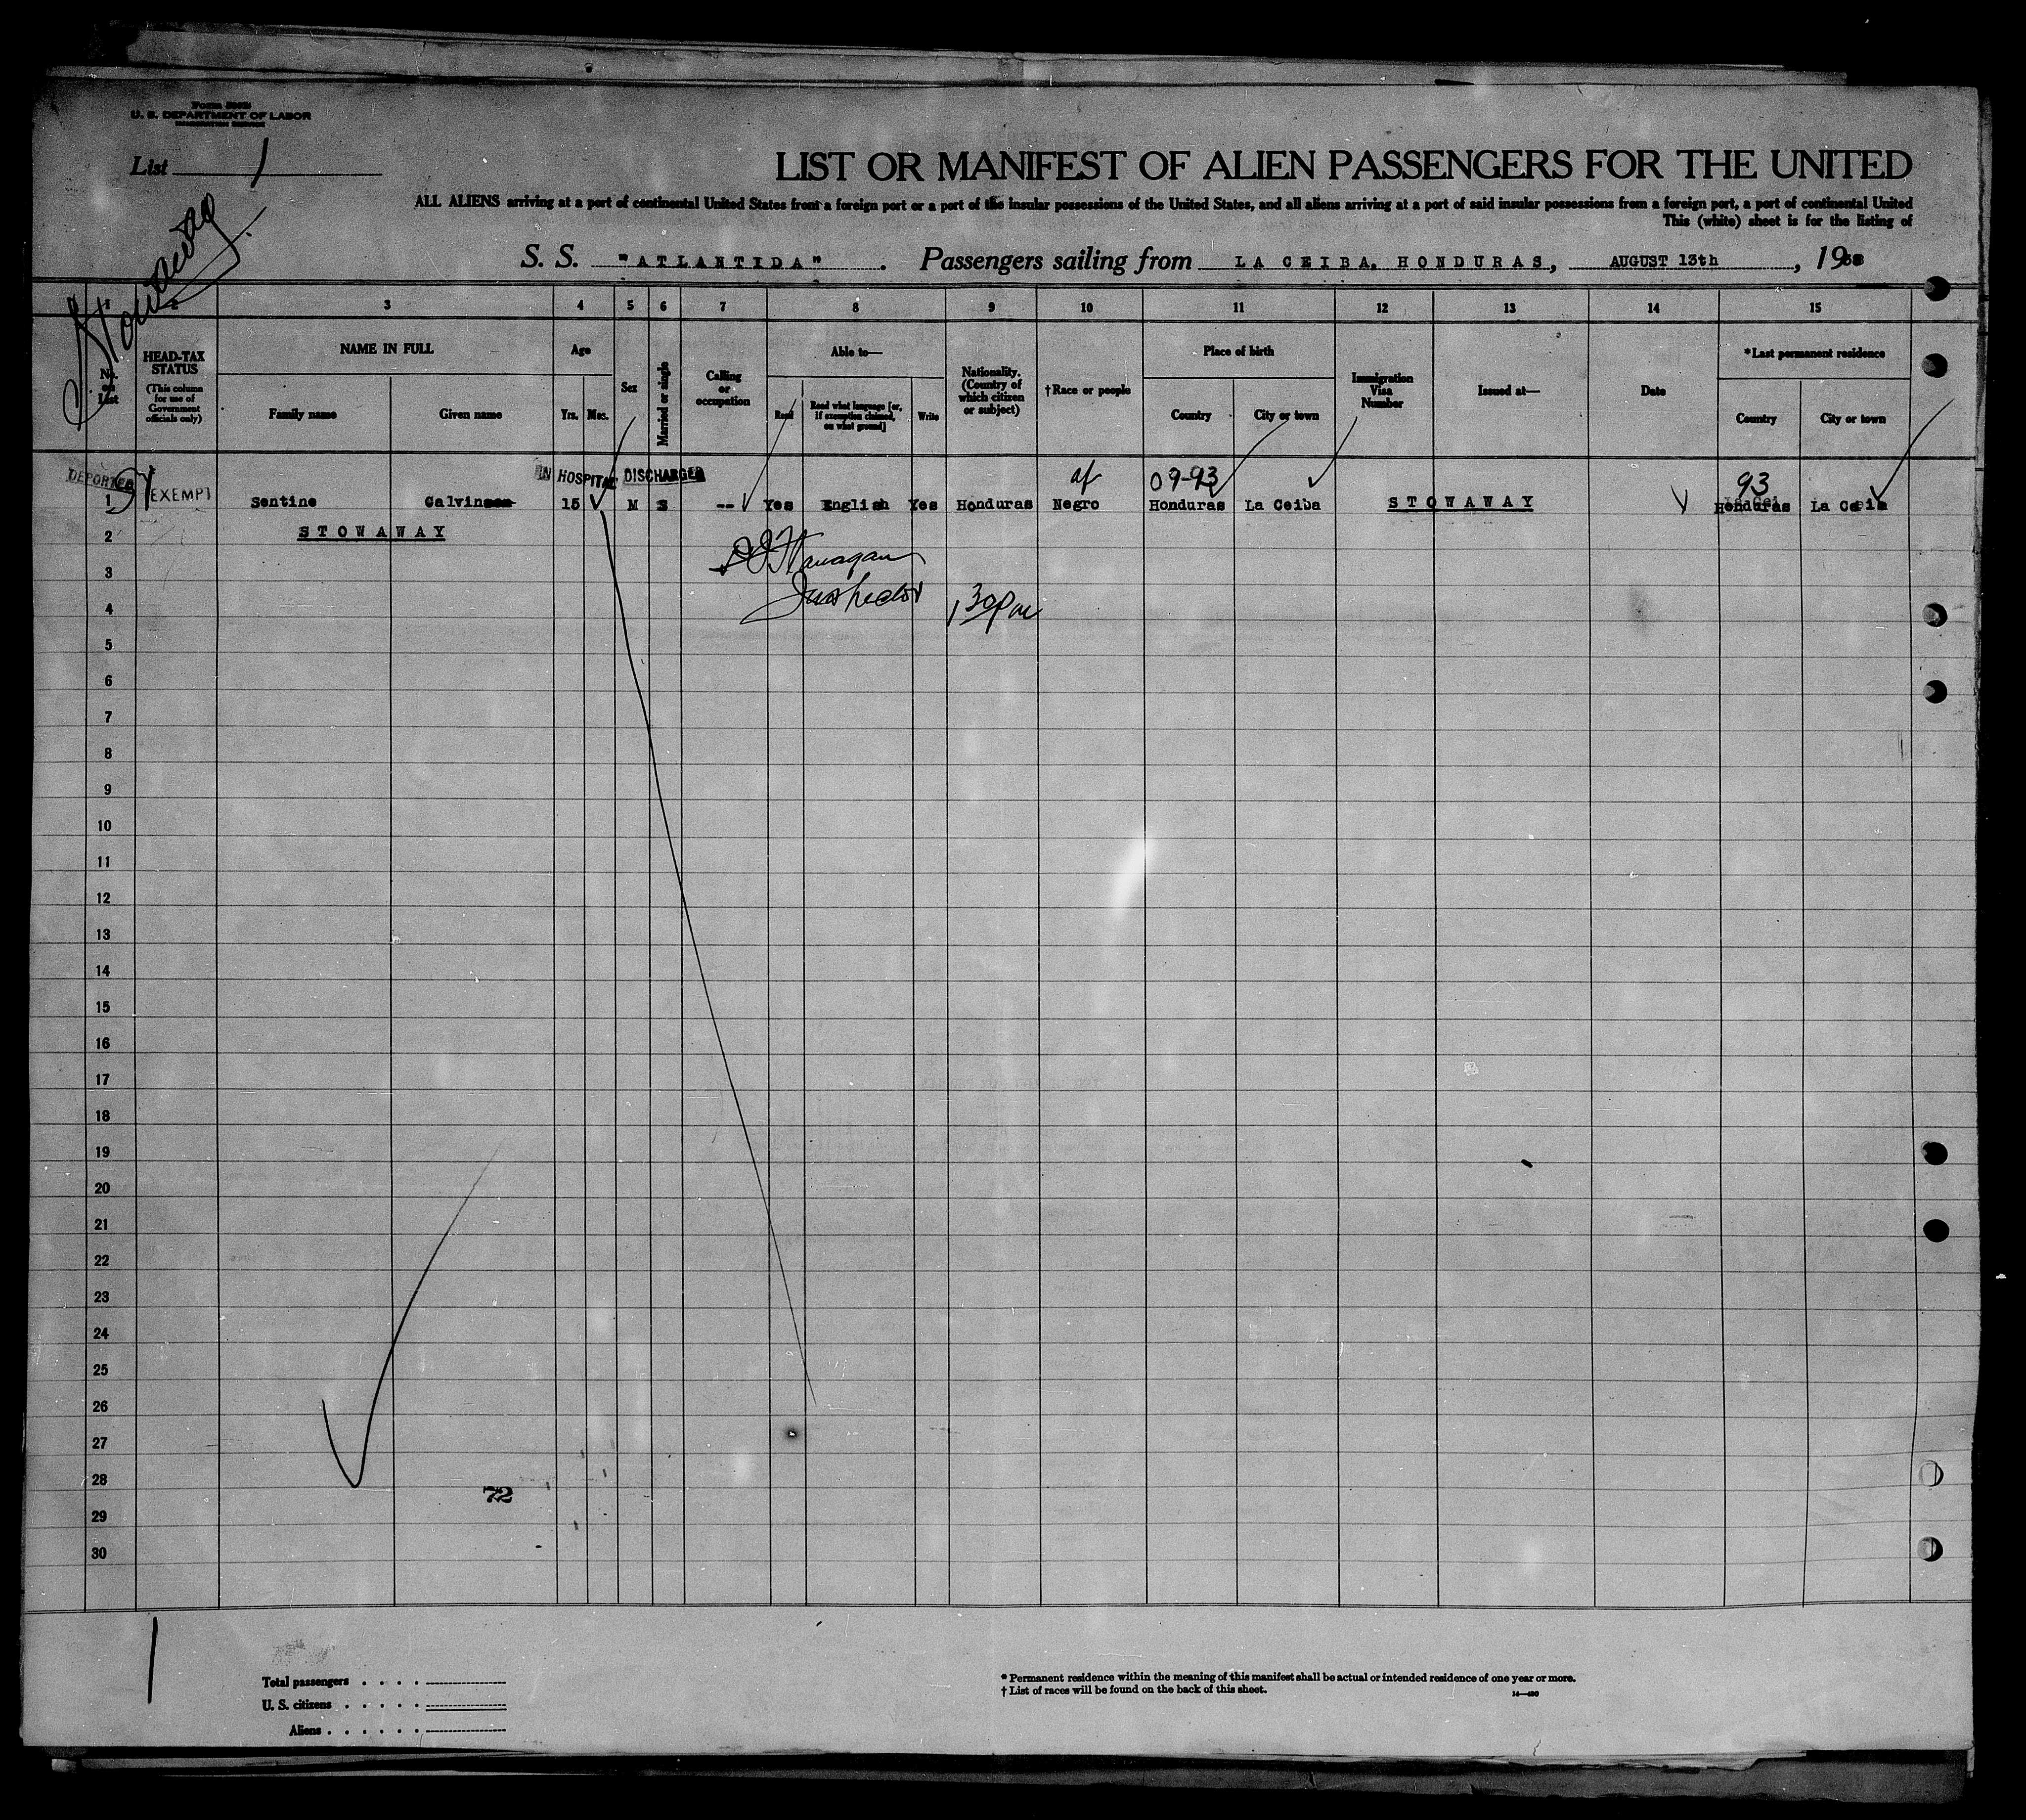 U. S. DEPARTMENT OF LABOR
List 1
Stowaway
LIST OR MANIFEST OF ALIEN PASSENGERS FOR THE UNITED
ALL ALIENS arriving at a port of continental United States from a foreign port or a port of the insular possessions of the United States, and all aliens arriving at a port of said insular possessions from a foreign port, a port of continental United
This (white) sheet is for the listing of
S. S. "ATLANTIDA". Passengers sailing from LA CEIBA, HONDURAS, AUGUST 13th, 19
1 2 3 4 5 6 7 8 9 10 11 12 13 14 15
No. on List
HEAD-TAX STATUS
(This column for use of Government officials only)
NAME IN FULL
Family name Given name
Age
Yrs. Mos.
Sex
Married or single
Calling or occupation
Able to—
Read Read what language [or, if exemption claimed, on what ground] Write
Nationality. (Country of which citizen or subject)
†Race or people
Place of birth
Country City or town
Immigration Visa Number
Issued at—
Date
*Last permanent residence
Country City or town
DEPORTED IN HOSPITAL DISCHARGED af 09-93 93
1 EXEMPT Sentine Calvin 15 M S -- Yes English Yes Honduras Negro Honduras La Ceiba STOWAWAY Honduras La Ceib
2 STOWAWAY
Flanagan
3
Inspector 1 30 pm
4
5
6
7
8
9
10
11
12
13
14
15
16
17
18
19
20
21
22
23
24
25
26
27
28
72
29
30
1
Total passengers
U. S. citizens
Aliens
* Permanent residence within the meaning of this manifest shall be actual or intended residence of one year or more.
† List of races will be found on the back of this sheet.